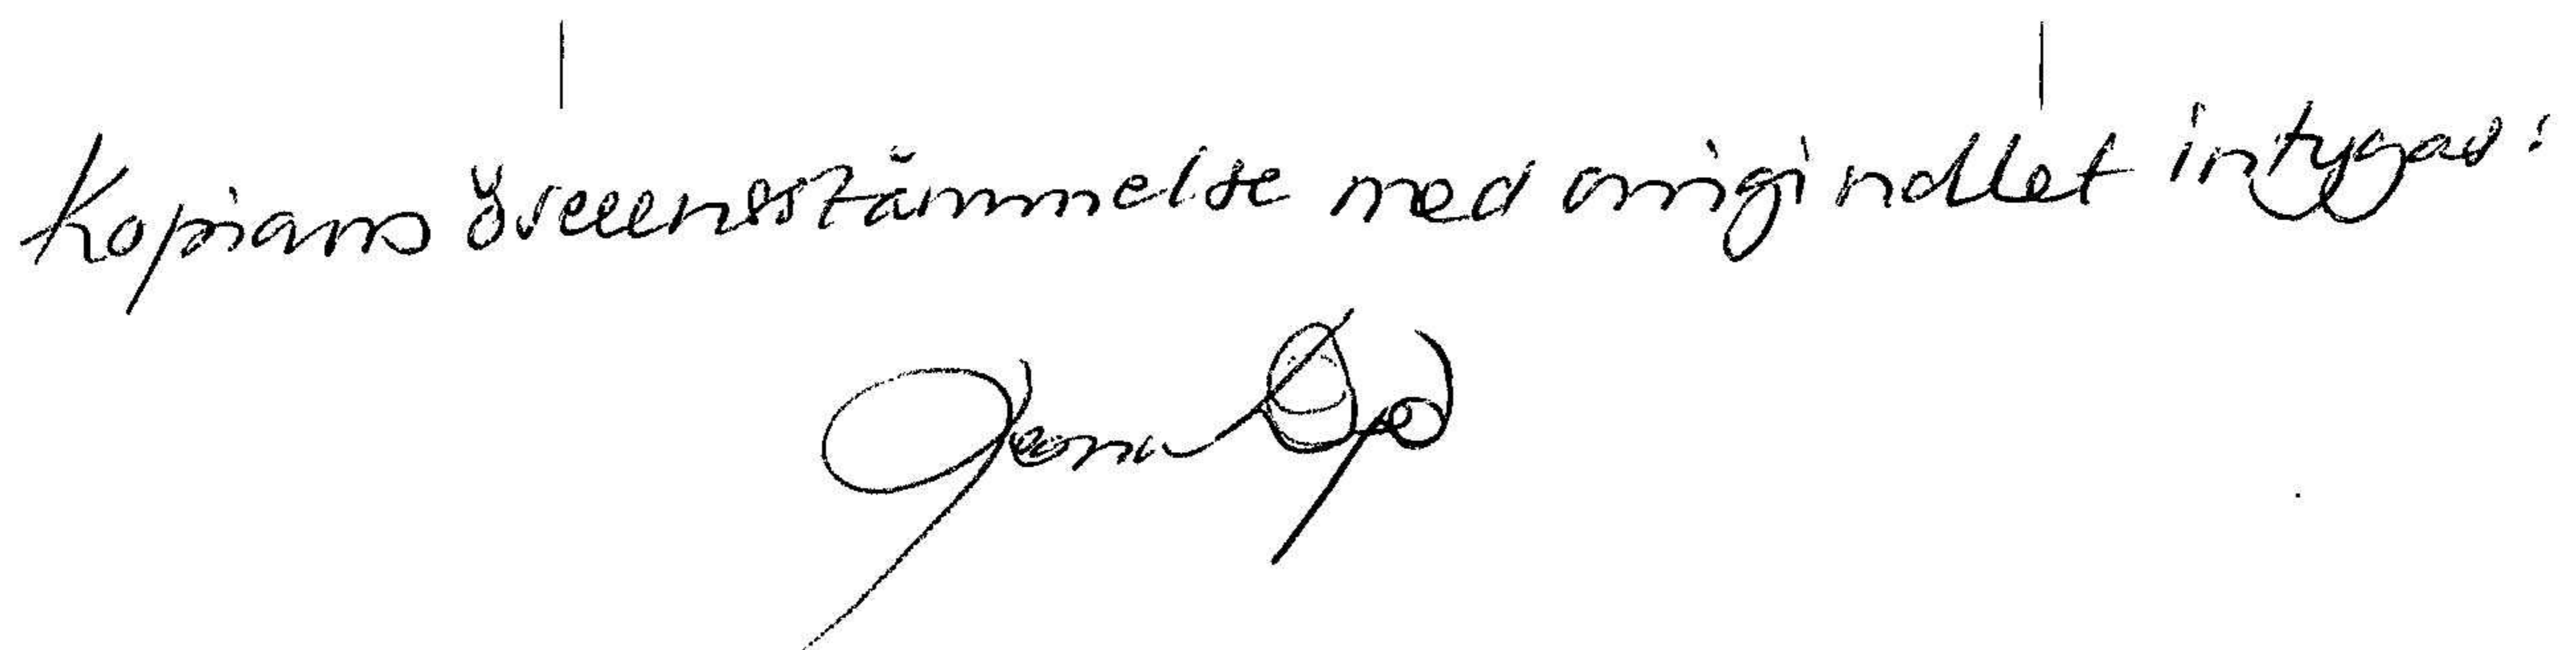 Kopians överensstämmelse med originalet intygas: